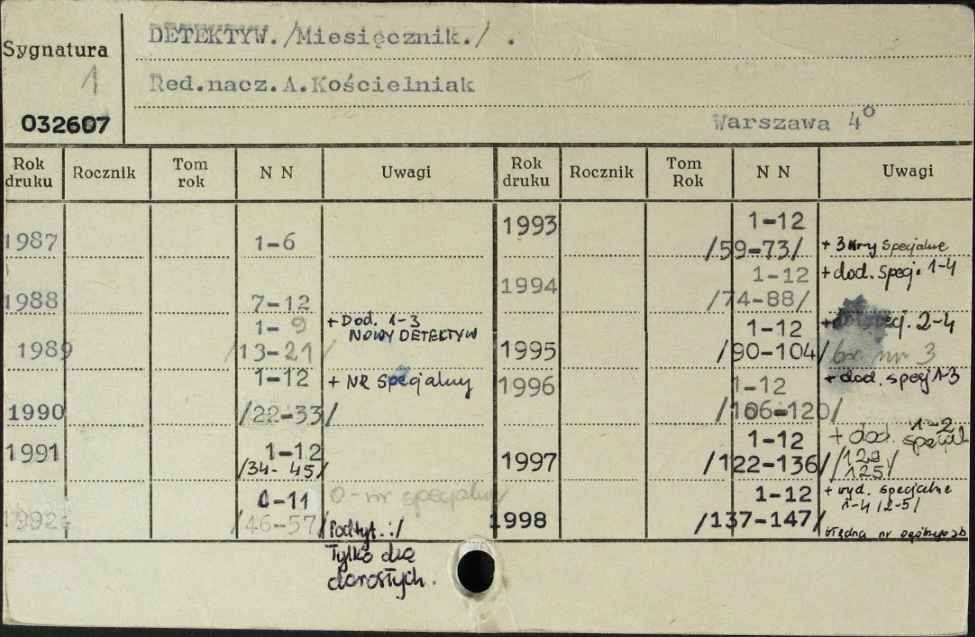 Sygnatura
1
032607
DETEKTYW./Miesięcznik./ .
Red.nacz.A.Kościelniak
Warszawa 4°
Rok druku Rocznik Tom rok N N Uwagi
1987 1-6
1988 7-12
1989 1-9 /13-21/ + Dod. 1-3 NOWY DETEKTYW
1990 1-12 /22-33/ + NR Specjalny
1991 1-12 /34-45/
1992 0-11 /46-57/ 0-nr specjalny
Podtyt.:/
Tylko dla
dorosłych.
Rok druku Rocznik Tom Rok N N Uwagi
1993 1-12 /59-73/ + 3 nr-y specjalne
1994 1-12 /74-88/ + dod. specj. 1-4
1995 1-12 /90-104/ + dod. specj. 2-4 br. nr 3
1996 1-12 /106-120/ + dod. specj 1-3
1997 1-12 /122-136/ + dod. 1-2 specjal /129 125/
1998 1-12 /137-147/ + wyd. specjalne 1-4 /2-5/
błędna nr